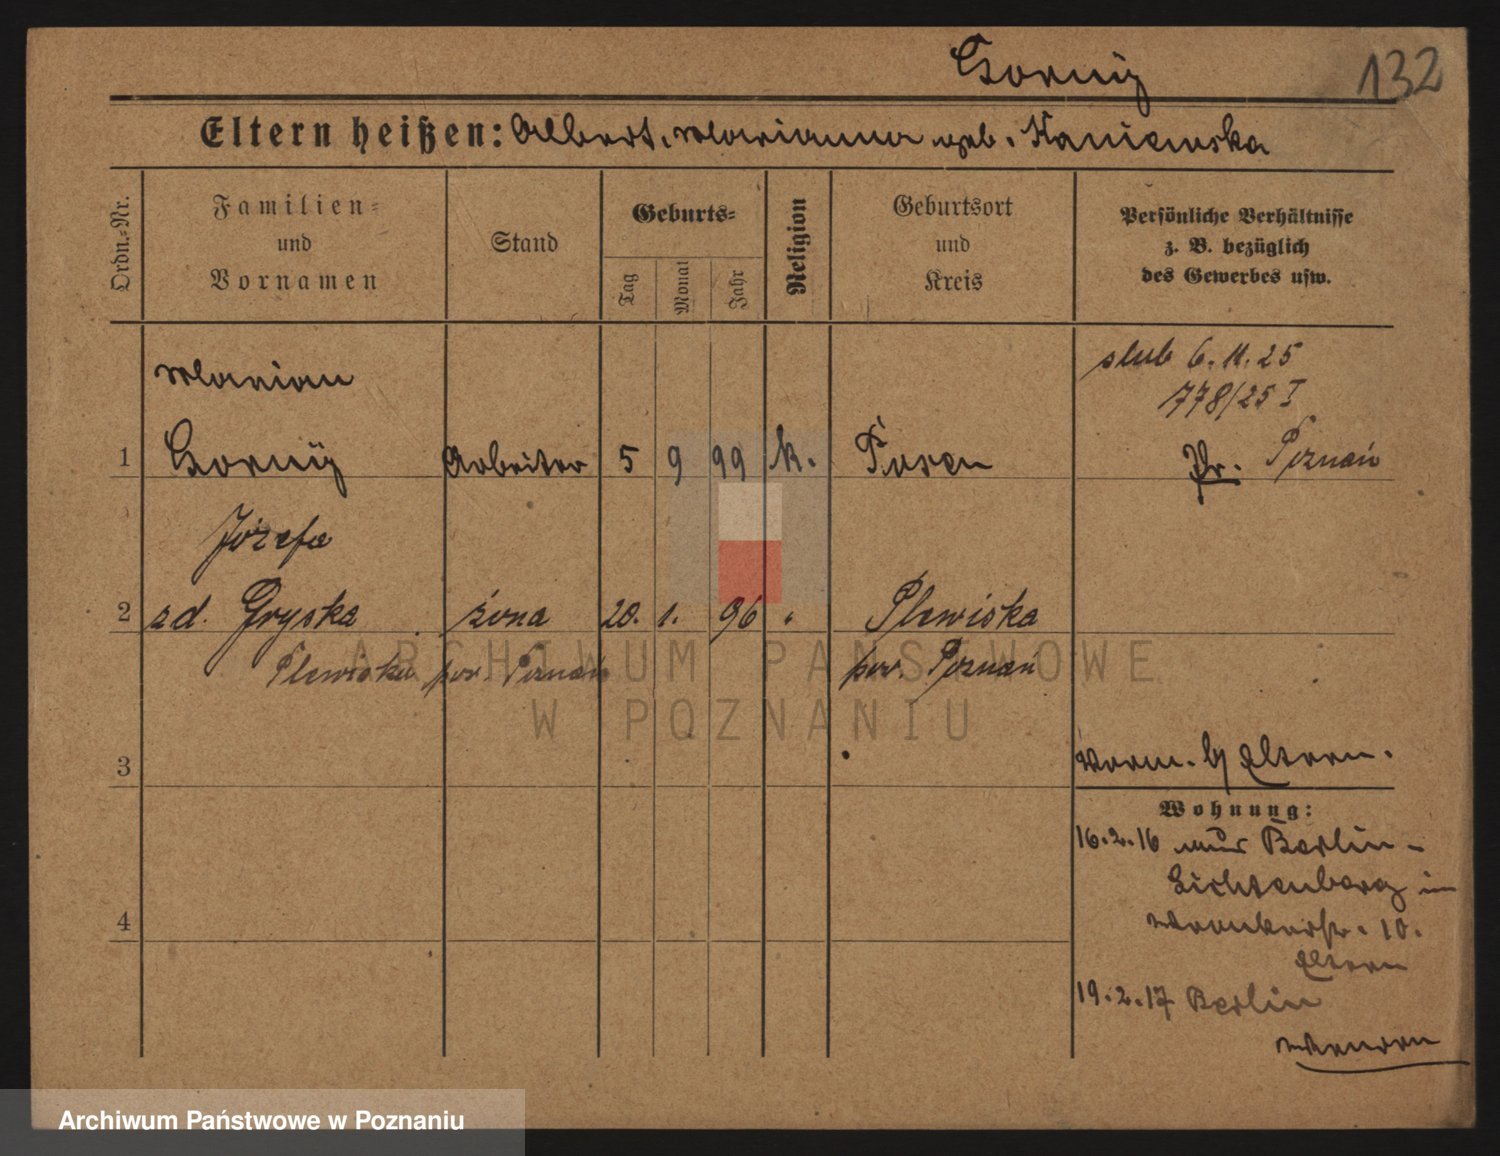 Gorny
132
Eltern heißen: Albert, Marianna geb. Kaniewska
Ordn.-Nr.
Familien-
und
Vornamen
Stand
Geburts-
Tag
Monat
Jahr
Religion
Geburtsort
und
Kreis
Persönliche Verhältnisse
z. B. bezüglich
des Gewerbes usw.
slub 6.11.25
778/25 I
Marian
1 Gorny Arbeiter 5 9 99 k. Posen Pr. Poznań
Józefa
2 zd. Gryska żona 20. 1. 96 " Plewiska
Plewiska pow. Poznań pow. Poznań
ARCHIWUM PAŃSTWOWE
W POZNANIU
3
Eltern.
Wohnung:
16.2.16 Berlin-
Lichtenberg
4
10.
Eltern
19.2.17 Berlin
Archiwum Państwowe w Poznaniu